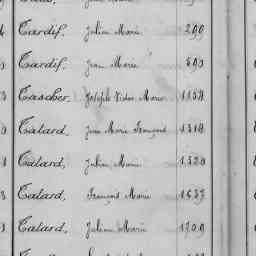 Tardif, Julien Marie 299
Tardif, Jean Marie 593
Tascher, Joseph Victor Marie 1158
Talard, Jean Marie François 1318
Talard, Julien Marie 1320
Talard, François Marie 1637
Talard, Julien Marie 1709